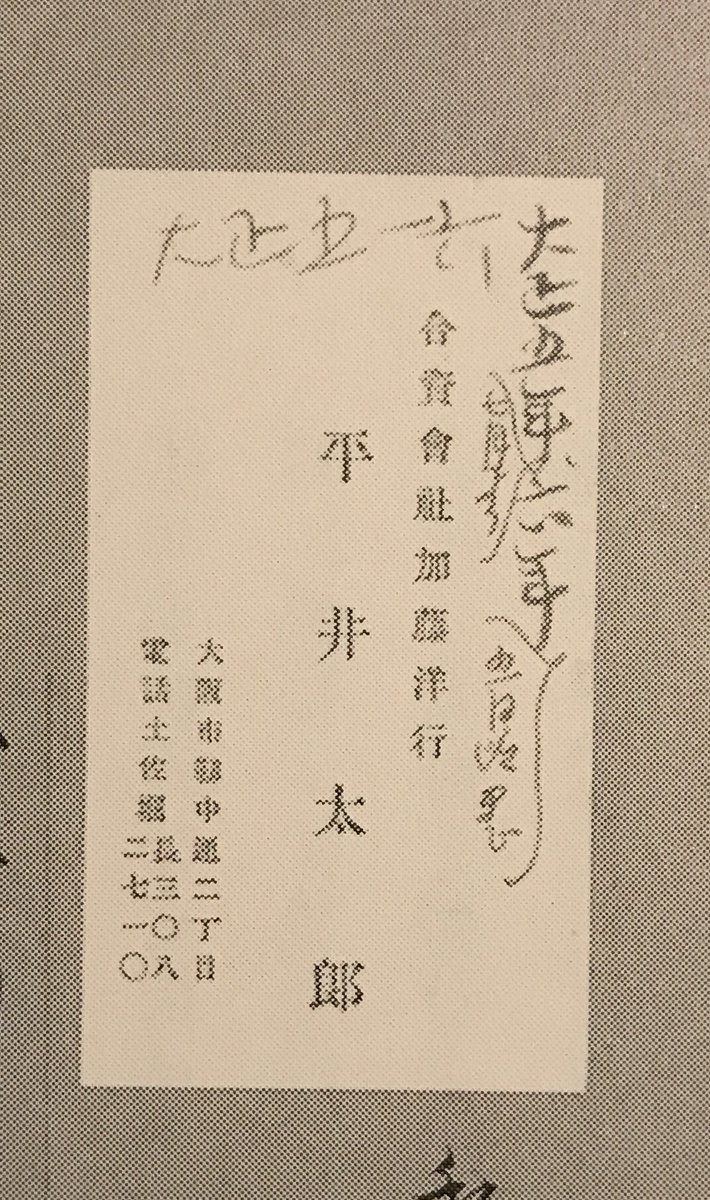 大正五—六
大正五年六月
合資會社加藤洋行
平井太郎
大阪市靱中通二丁目
電話土佐堀長三〇八
二七一〇